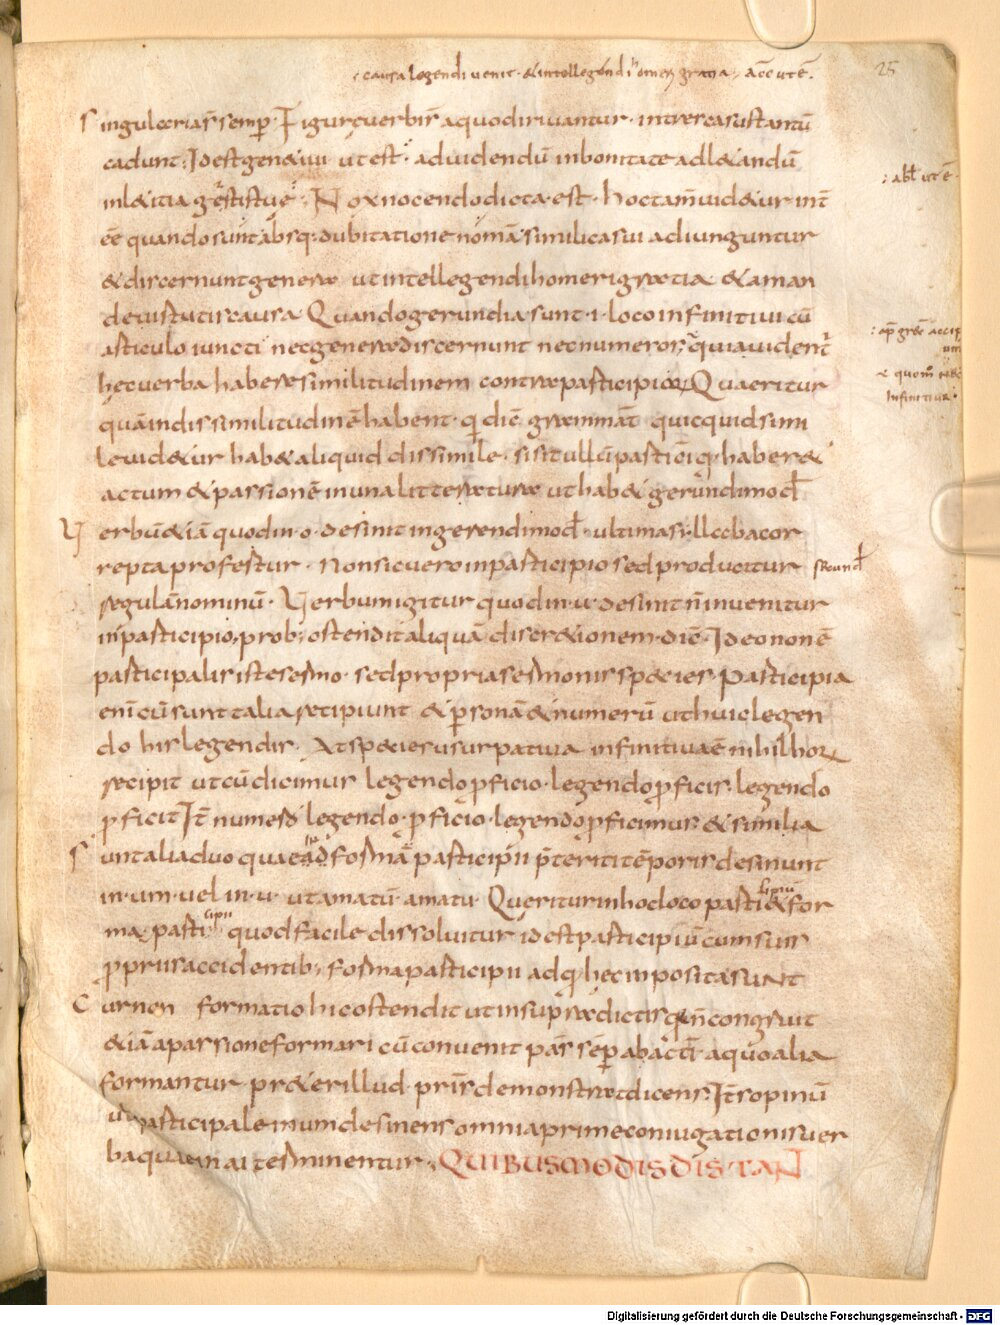 causa legendi uenit · & intellegendi omeri gratia · acc ut ē.
25
Singulecrias semp̄ Figurę uerbis a quo diriuantur · inter casus tantū
cadunt · Id est gen&iui ut est · ad uidendū in bonitate ad l&andū
: abl ut ē
in l&itia gestis tuę · Nox nocendo dicta est · hoc tam̄ uid&ur int̄
eē quando sunt absq; dubitatione nom̄a simili casui adiunguntur
& discernunt genera ut intellegendi homeri gratia & aman
de uirtutis causa Quando gerundia sunt · i · loco infinitiui cū
articulo iuncti nec genera discernunt nec numeros, quia uident̄
hec uerba habere similitudinem contra participior Quaeritur
infinitiua
quā in dissimilitudinē habent · q̄ diē grammat̄ quicquid simi
le uid&ur hab& aliquid dissimile · si sit ullū participiū q̄ haber&
actum & passionē in una litteratura ut hab& gerundi mod̄
Verbū &iā quod in · o · desinit in gerendi mod̄ · ultima syllaba cor
repta profertur · Non sic uero in participio sed producitur secund̄
regulā nominū · Verbum igitur quod in · u · desinit n̄ inuenitur
in participio, prob; ostendit aliquā discr&ionem · diē · Ideo non ē
participalis iste sermo · sed propria sermonis species · Participia
enī cū sunt talia recipiunt & p̄sonā & numerū ut huic legen
do his legendis · At species usurpatiua infinitiua ē nihil hor
recipit ut cū dicimus legendo pficio · legendo pficis · legendo
pficit It̄ numerō legendo · pficio · legendo pficimus & similia
Sunt alia duo quae ad formā participii p̄teriti tēporis desinunt
in · um · uel in · u · ut amatū · amatu · Queritur in hoc loco parti cipiū & for
ma · parti cipii quod facile dissoluitur id est participiū cum suis
ppriis accidentib; forma participii ad q̄ hec inposita sunt
Cur non formatio hic ostendit ut in supradictis q̄n congruit
&iā a passione formari cū conuenit pas̄ sep̄ ab acti · a quo alia
formantur pr&er illud · pris̄ demonstrat dicens · It̄ sopinū
uł participale in um desinens omnia prime coniugationis uer
ba quae in ai terminentur · QUIBUS MODIS DISTAN